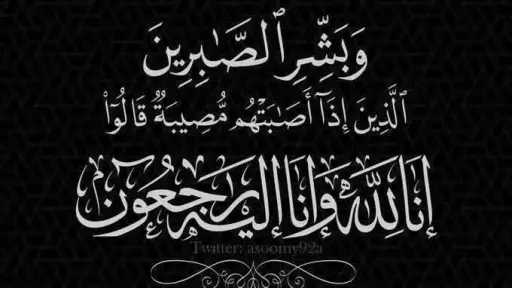 وَبَشِّرِ ٱلصَّـٰبِرِينَ
ٱلَّذِينَ إِذَآ أَصَـٰبَتْهُم مُّصِيبَةٌ قَالُوٓا۟
إنا لله وإنا إليه راجعون
Twitter: asoomy92a